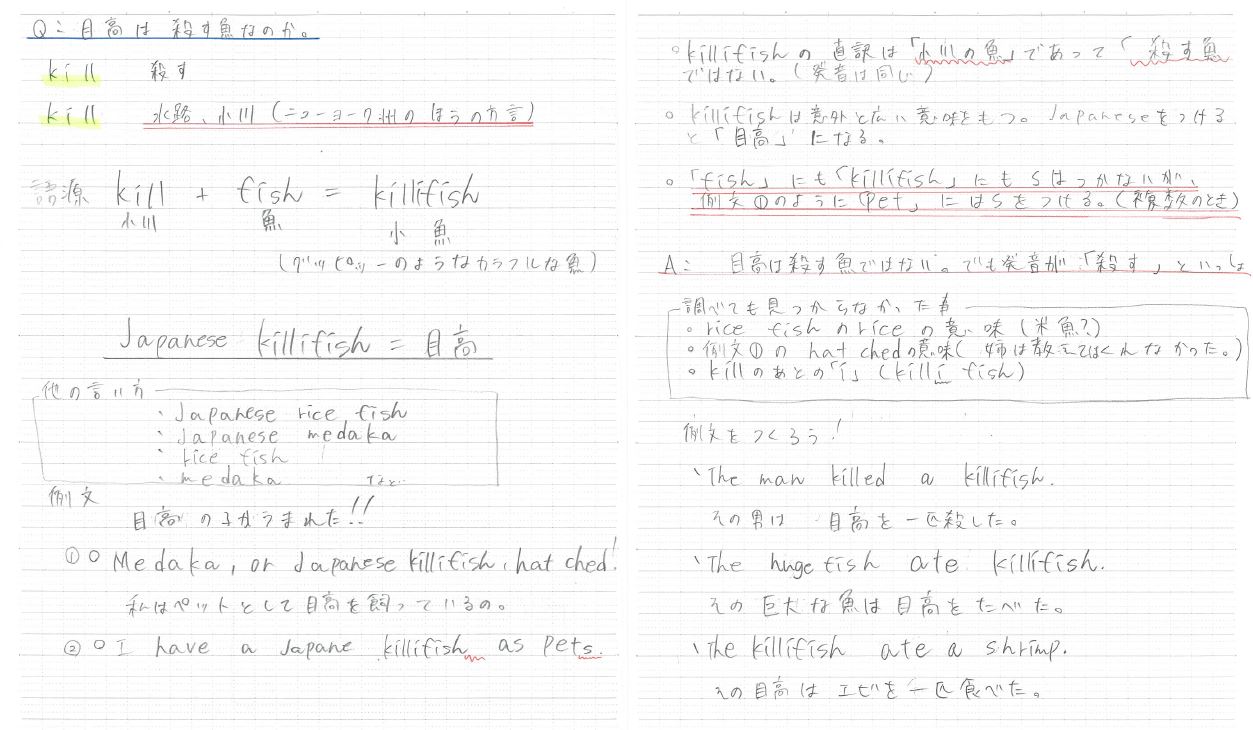 Q: 目高は殺す魚なのか。
kill 殺す
kill 水路、小川(ニューヨーク州のほうの方言)
語源 kill + fish = killifish
小川 魚 小魚
(グッピーのようなカラフルな魚)
Japanese killifish = 目高
他の言い方
・Japanese rice fish
・Japanese medaka
・rice fish
・medaka など…
例文
目高の子がうまれた!!
①○ Medaka, or Japanese killifish, hat ched!
私はペットとして目高を飼っているの。
②○ I have a Japane killifish as pets.
○killifishの直訳は「小川の魚」であって「殺す魚
ではない。(発音は同じ)
○killifishは意外と広い意味をもつ。Japaneseをつける
と「目高」になる。
○「fish」にも「killifish」にもsはつかないが、
例文①のように「pet」にはsをつける。(複数のとき)
A: 目高は殺す魚ではない。でも発音が「殺す」といっしょ
調べても見つからなかった事
○rice fishのriceの意味(米魚?)
○例文①のhat chedの意味(姉は教えてはくれなかった。)
○killのあとの「i」(killi fish)
例文をつくろう!
、The man killed a killifish.
その男は 目高を一匹殺した。
、The huge fish ate killifish.
その巨大な魚は目高をたべた。
、The killifish ate a shrimp.
その目高はエビを一匹食べた。